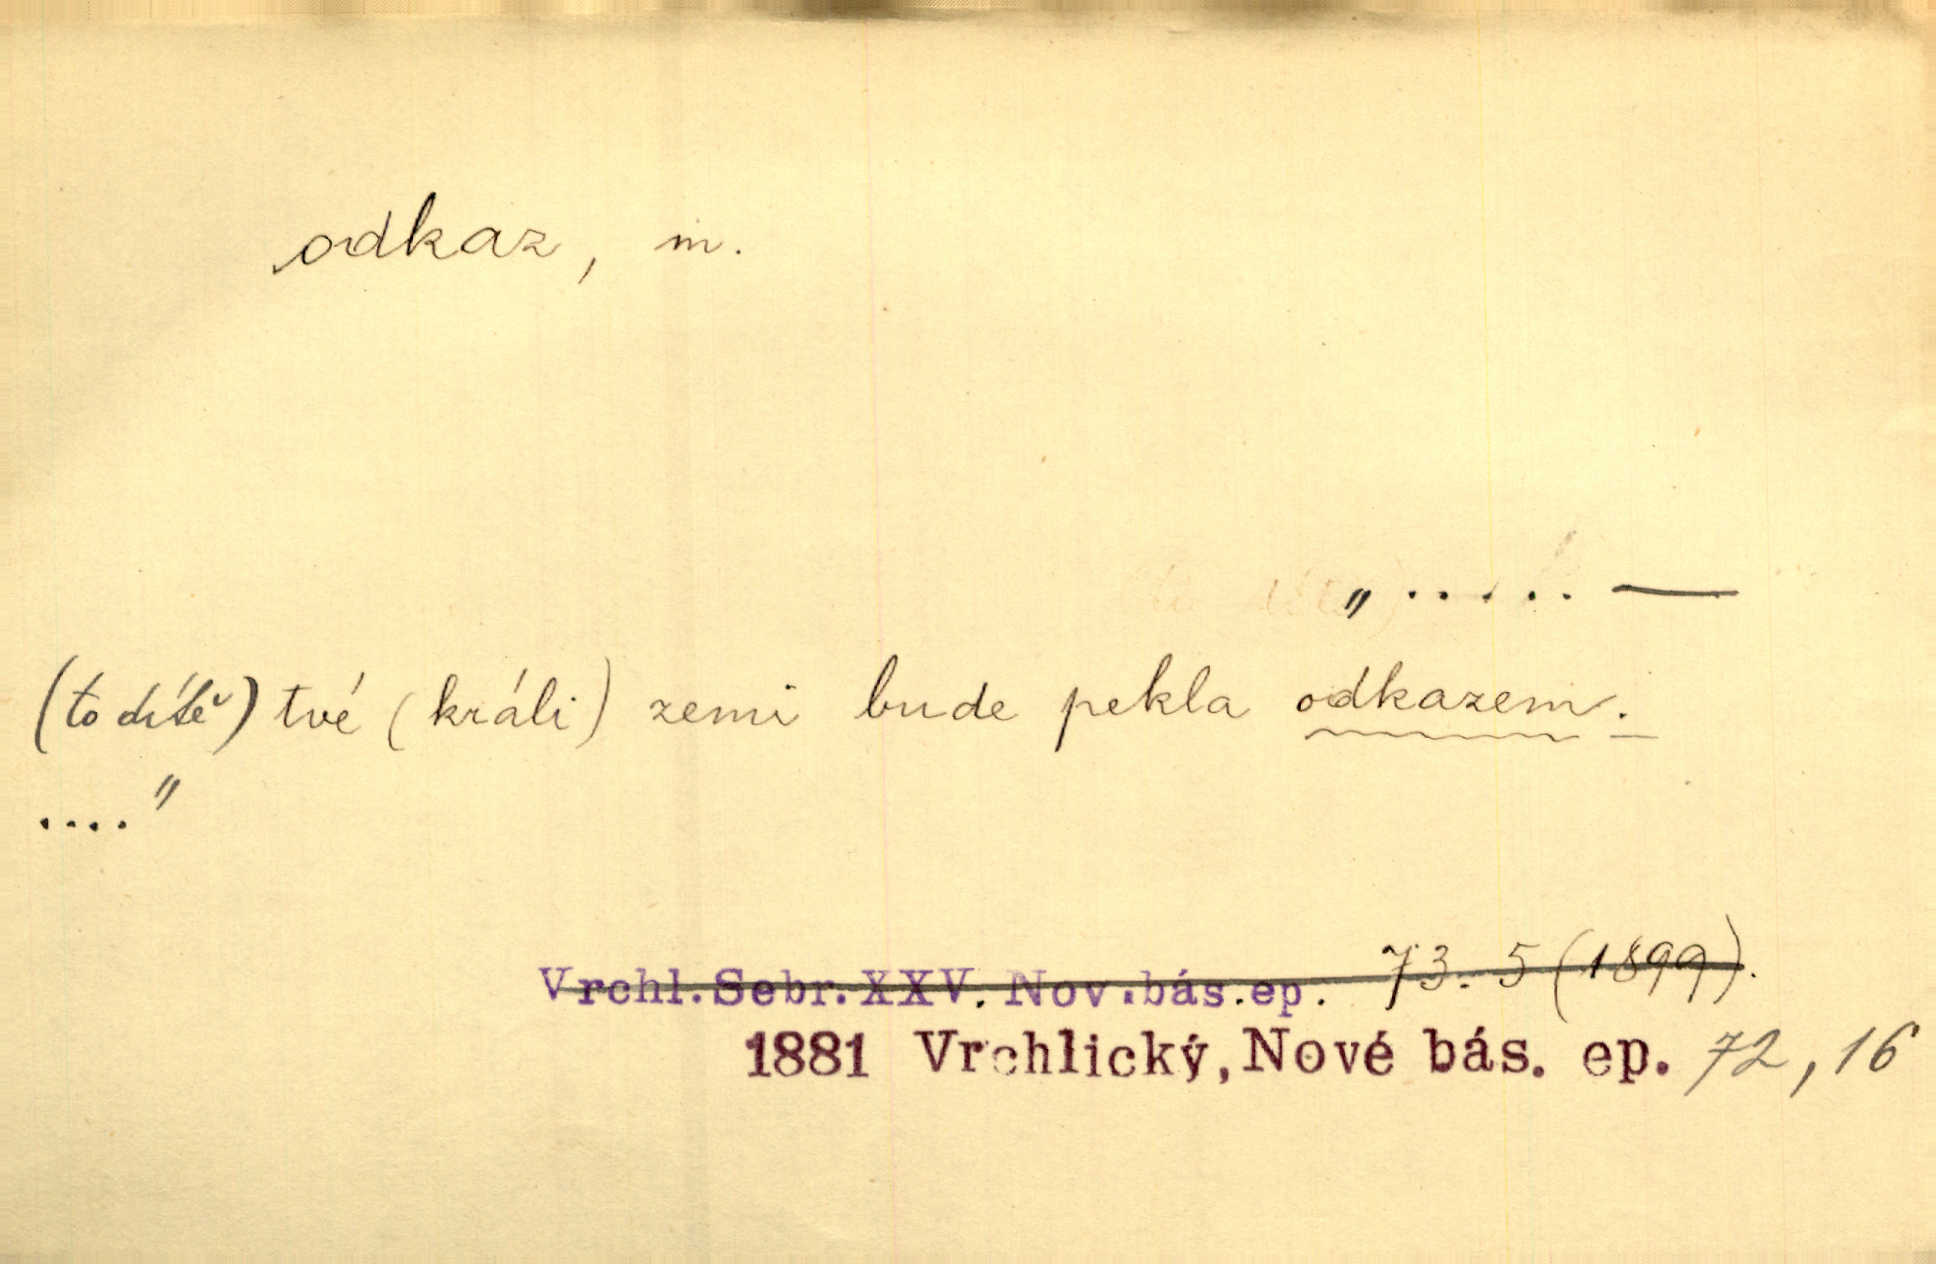 odkaz, m.
„ ..... —
(to dítě) tvé (králi) zemi bude pekla odkazem.
...."
Vrchl. Sebr. XXV. Nov. bás. ep. 73. 5 (1899).
1881 Vrchlický, Nové bás. ep. 72, 16